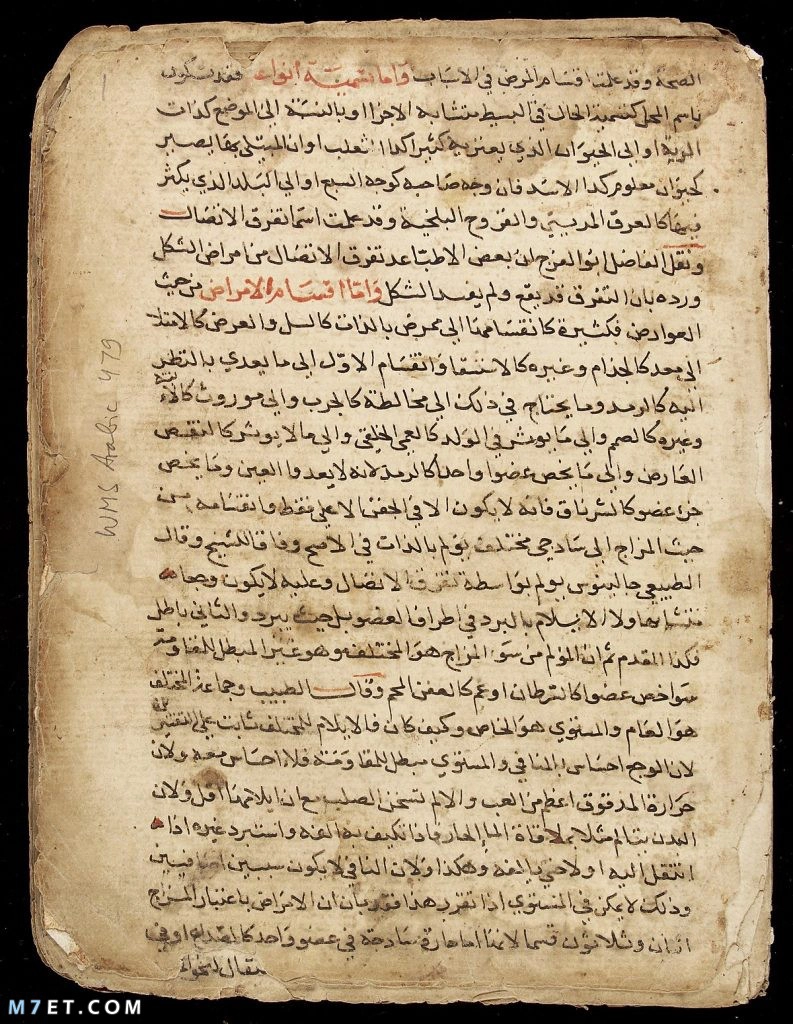 الصحة وقد علمت اقسام المرض في الاسباب واما تسمية انواعه فقد تكون
باسم المحل كتسمية الحال في البسيط متشابه الاجزا او بالنسبة الى الموضع كذات
الرية او الى الحيوان الذي يعتريه كثيرا كداء الثعلب او ان المبتلى بها يصير
كحيوان معلوم كدا الاسد فان وجه صاحبه كوجه السبع او الى البلد الذي يكثر
فيها كالعرق المديني والقروح البلخية وقد علمت اسما تفرق الاتصال
ونقل الفاضل ابو الفرج ان بعض الاطبا عد تفرق الاتصال من امراض الشكل
ورده بان التفرق قد يقع ولم يفسد الشكل واما اقسام الامراض من حيث
العوارض فكثيرة كانقسامها الى ممرض بالذات كالسل والعرض كالامتلا
الى معد كالجذام وغيره كالاستسقا وانقسام الاول الى ما يعدي بالنظر
اليه كالرمد وما يحتاج في ذلك الى مخالطة كالجرب والى موروث
وغيره كالصمم والى ما يوثر في الولد كالعمى الخلقي والى ما لا يوثر كالنقص
العارض والى ما يخص عضوا واحدا كالرمد لانه لا يعدوا العين وما يخص
جزء عضو كالشرناق فانه لا يكون الا في الجفن الاعلى فقط وانقسامه من
حيث المزاج الى ساذجي مختلف يولم بالذات في الاصح وفاقا للشيخ وقال
الطبيعي جالينوس يولم بواسطة تفرق الاتصال وعليه لا يكون وجعا
متشابها ولا الايلام بالبرد في اطراف العضو بل حيث يبرد والثاني باطل
فكذا المقدم ثم ان المولم من سو المزاج هو المختلف وهو غير المبطل للمقاومة
سوا خص عضوا كالسرطان او عم كالعفن الحم وقال الطبيب وجماعة المختلف
هو العام والمستوي هو الخاص وكيف كان فالايلام للمختلف ثابت على
لان الوجع احساس بالمنافي والمستوي مبطل للمقاومة فلا احساس معه ولان
حرارة المدقوق اعظم من الغب والا لم تسخن الصلب مع ان ايلامها اقل ولان
البدن يتالم مثلا بملاقاة الما الحار فاذا تكيف به الفه واستبرد غيره اذا
انتقل اليه اولا حتى يالفه وهكذا ولان التنافي لا يكون سببين
وذلك لا يمكن في المستوي اذا تقرر هذا فقد بان ان الامراض باعتبار المزاج
اثنان وثلاثون قسما لانها اما حارة ساذجة في عضو واحد كالصداع او في
WMS Arabic 479
1
M7ET.COM